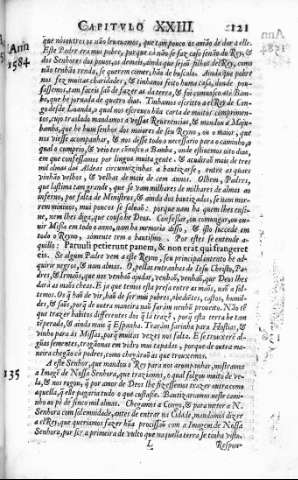 CAPITVLO XXIII. 121
Ann
1584
que nosotros os não leuaremos, que tam pouco os auião de dar a elle.
Este Padre era mui pobre, porque cà não se faz caso senão do Rey, &
dos Senhores dos pouos, os demais, ainda que sejaõ filhos del Rey, como
não tenhão renda, se querem comer, hão de buscalo. Ainda este pobre
nos fez muitas charidades, & tinhamos feito huma casa, donde pou-
sassemos, tam faceis são de fazer as da terra, &
bo, que he jornada de quatro dias. Tinhamos escrito a el Rey de Con-
go desde Loanda, o qual nos escreueo hũa carta de muitos comprimen-
tos, cujo traslado mandamos a vossas Reuerencias, & mandou a
bamba, que he hum senhor dos maiores de seu Reyno, ou o maior, que
nos viesse acompanhar, & nos désse todo o necessario para o caminho, o
qual o comprio, & veio ter comnosco a Bambo, onde estiuemos oito dias,
em que confessamos por lingua muita gente. & acudirão mais de tres
mil almas das Aldeas circumuezinhas a bautizarse, entre as quaes
vinhão velhos, & velhas de mais de cem annos. Olhem, Padres,
que lastima tam grande, que se vam milhares de milhares de almas ao
inferno, por falta de Ministros, & ainda dos bautizados, se nam mor-
rem mininos, mui poucos se saluaõ: porque nam ha quem lhes ensi-
ne, nem lhes diga, que cousa he Deos. Confessar, ou comungar, ou ou-
uir Missa em todo o anno, nam ha memoria disso, & isto succede em
todo o Reyno, somente tem o bautismo. Por estes se entende a-
quillo: Paruuli petierunt panem, & non erat qui frangeret
eis. Se algum Padre vem a este Reyno, seu principal intento he ad-
quirir negros, & nam almas. O, pellas entranhas de Iesu Christo, Pa-
dres, & Irmãos, que nos venhaõ ajudar, venhaõ, venhaõ, que Deos lhes
darà as mãos cheas. E ja que temos esta presa entre as mãos, não a sol-
temos. Os q̃ haõ de vir, haõ de ser mui pobres, obedientes, castos, humil-
des, & sãos, porq̃ de outra maneira naõ farám nenhũ proueito. Não tẽ
que trazer habitos differentes dos q̃ là trazẽ, porq̃ esta terra he tam
tẽperada, & ainda mais q̃ Espanha. Tragam farinha para Hostias, &
vinho para as Missas, porq̃ muitas vezes nos falta. E se trouxerẽ al-
gũas sementes, tragamnas em vidro mui tapadas, porque de outra ma-
neira chegão cà podres, como chegáraõ as que trouxemos.
135
A este Senhor, que mandou o Rey para nos acompanhar, mostramos
a Imagẽ de Nossa Senhora, que traziamos, o qual folgou muito de ve-
la, & nos rogou, q̃ por amor de Deos lhe fizessemos trazer outra como
aquella, q̃ elle pagaria tudo o que custasse. Bautizaramos neste cami-
nho ao pè de sinco mil almas. Chegamos a Congo, & para meter a N.
Senhora com solemnidade, antes de entrar na Cidade, mandamos dizer
a el Rey, que queriamos fazer hũa procissaõ com a Imagem de Nossa
Senhora, por ser a primeira de vulto que naquella terra se tinha visto.
L Respon-